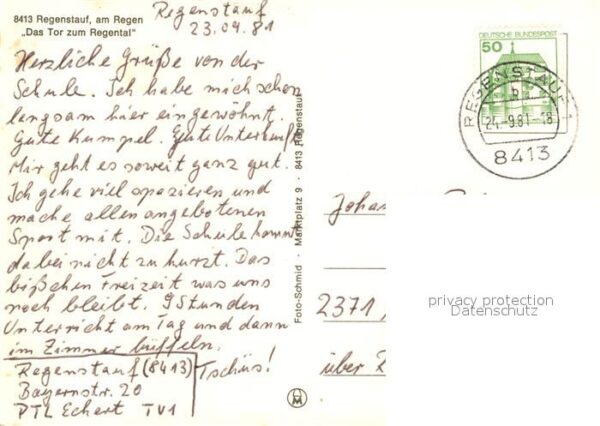 8413 Regenstauf, am Regen
„Das Tor zum Regental"
Regenstauf
23.09.81
Herzliche Grüße von der
Schule. Ich habe mich schon
langsam hier eingewöhnt.
Gute Kumpel. Gute Unterkunft
Mir geht es soweit ganz gut.
Ich gehe viel spazieren und
mache allen angebotenen
Sport mit. Die Schule kommt
dabei nicht zu kurzt. Das
bißchen Freizeit was uns
noch bleibt. 9 Stunden
Unterricht am Tag und dann
im Zimmer büffeln.
Tschüs!
Regenstauf (8413)
Bayernstr. 20
PTL Eckert TV1
Foto-Schmid · Marktplatz 9 · 8413 Regenstauf
DEUTSCHE BUNDESPOST
50
REGENSTAUF 1
b
24.-9.81-18
8413
Joha
2371
über R
privacy protection
Datenschutz